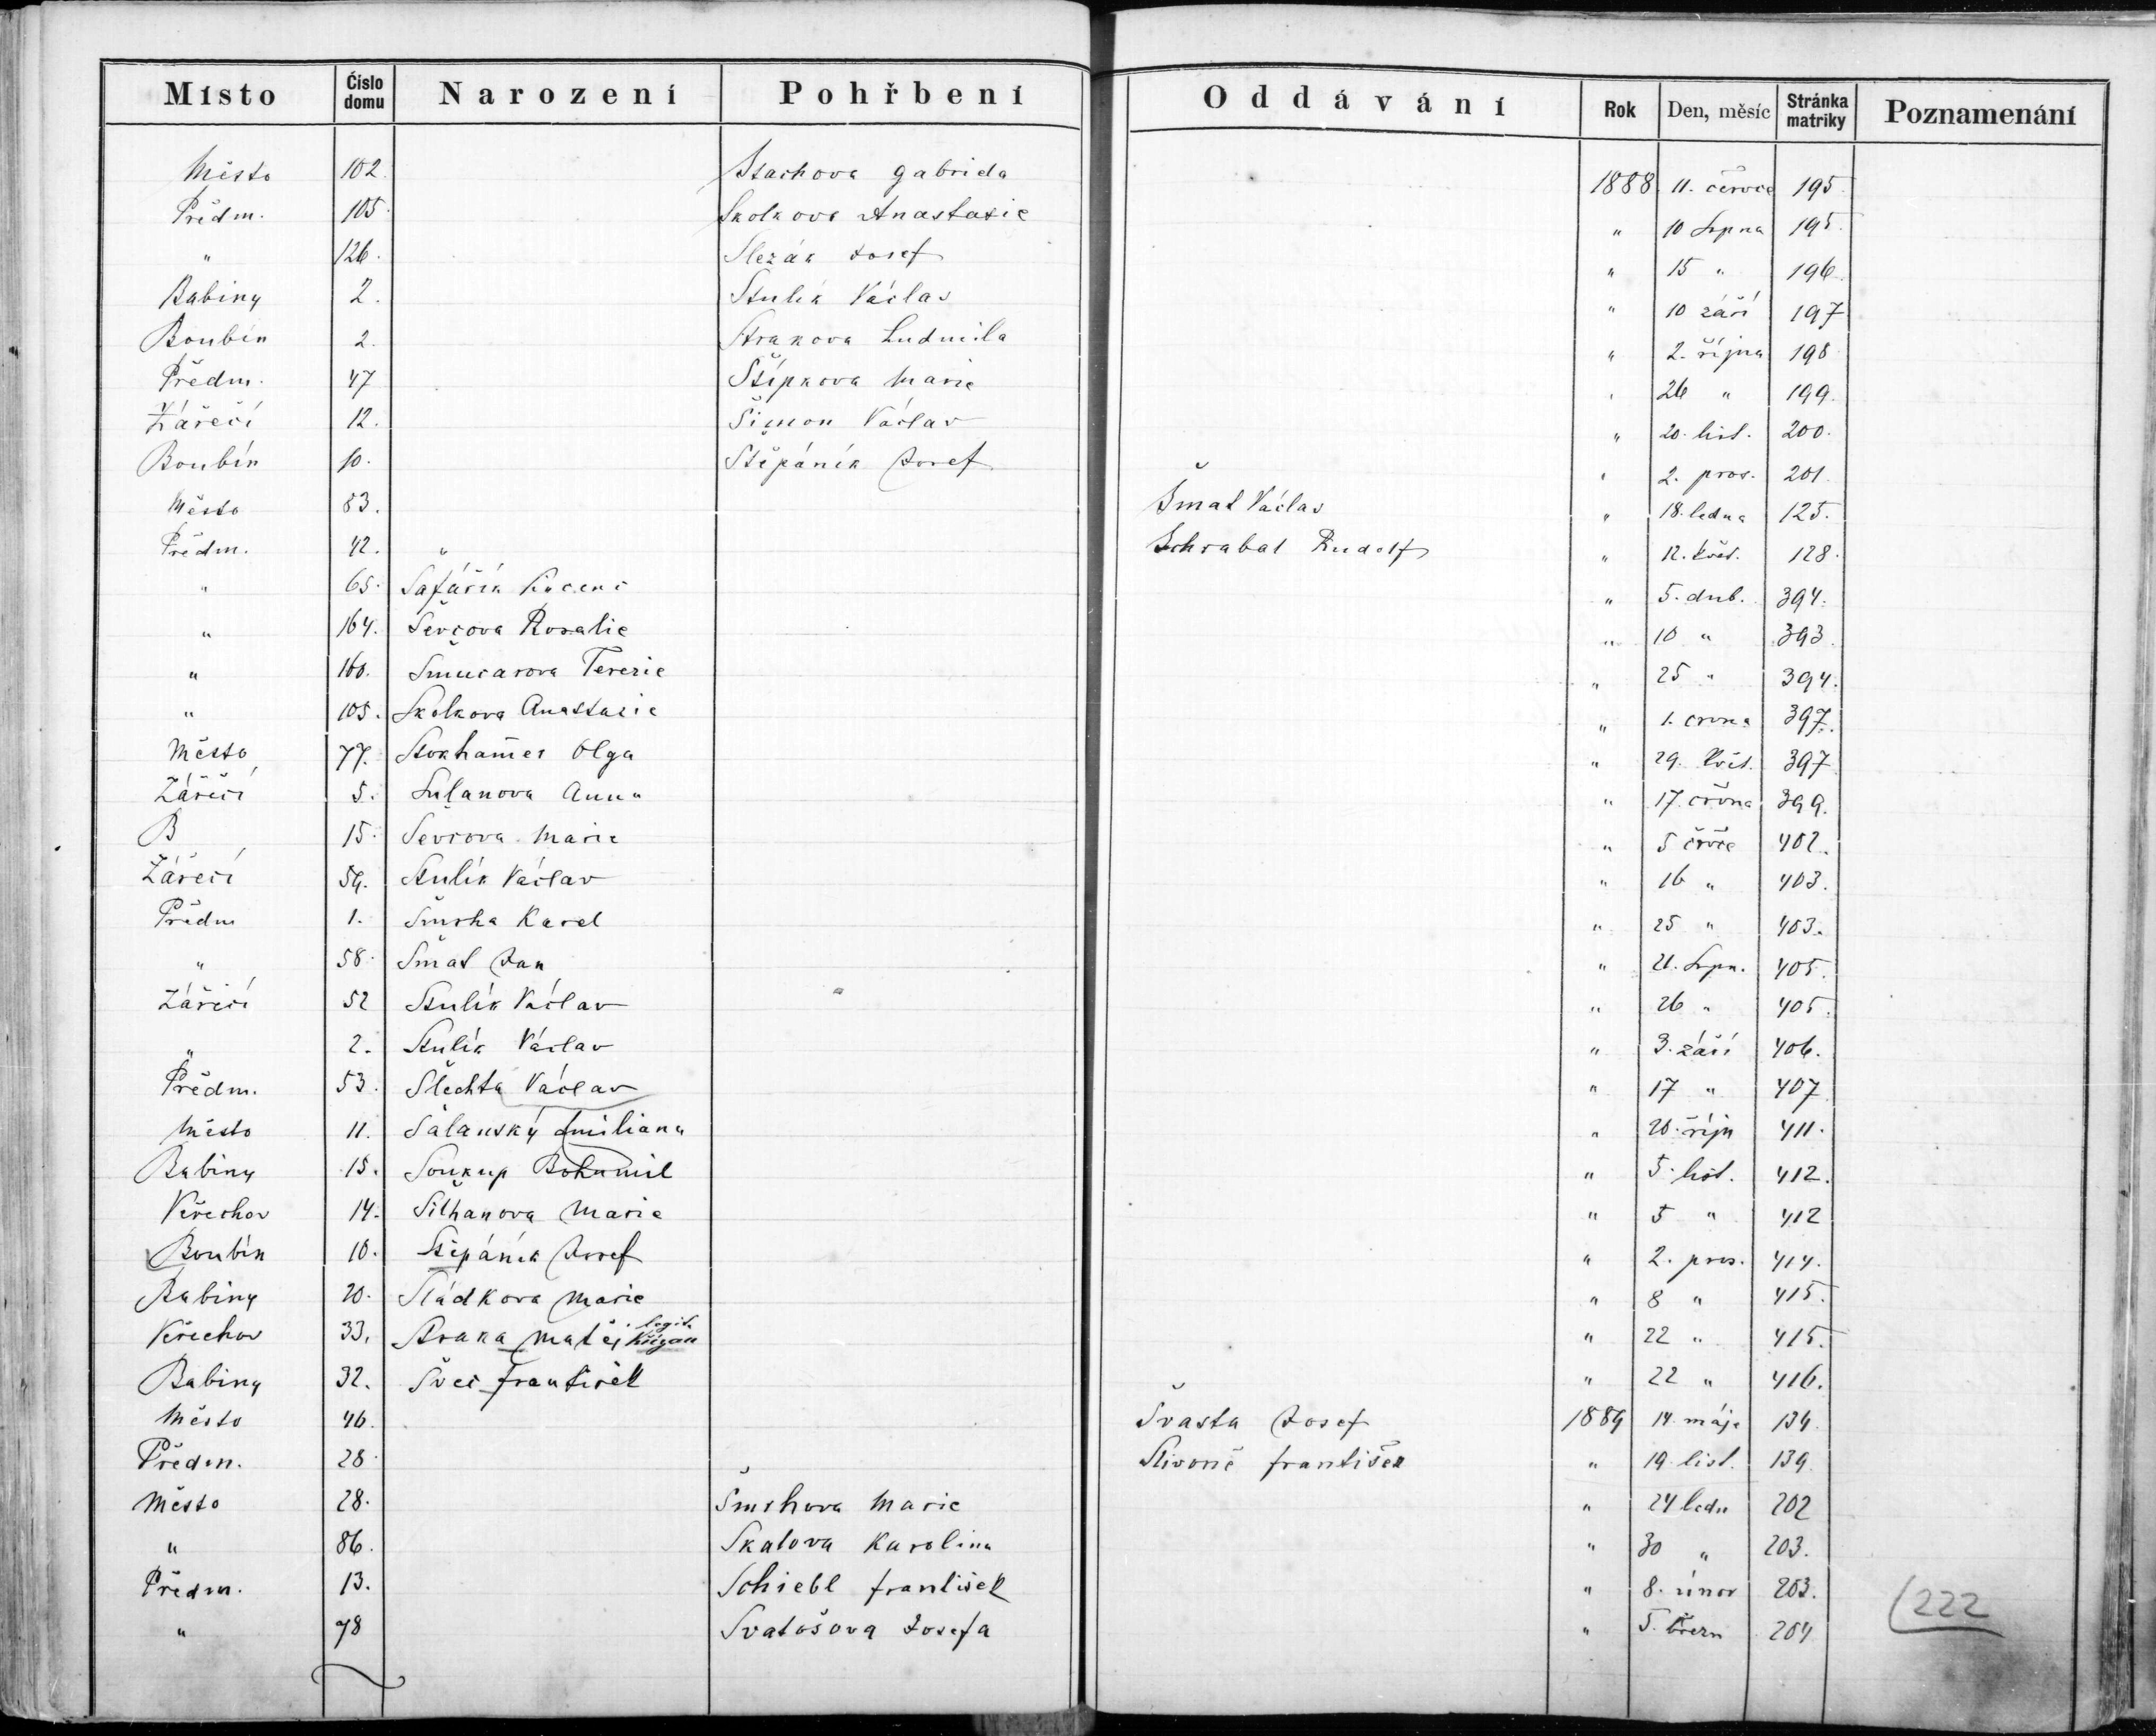 Místo Číslo domu Narození Pohřbení Oddávání Rok Den, měsíc Stránka matriky Poznamenání
Město 102. Stachova Gabriela 1888 11. července 195.
Předm. 105. Skolkova Anastasie " 10 Srpna 195.
" 126. Slezák Josef " 15 " 196.
Babiny 2. Stulík Václav " 10 září 197
Boubín 2. Strakova Ludmila " 2. října 198
Předm. 47 Štípkova Marie " 26 " 199.
Zářečí 12. Šimon Václav " 20. list. 200.
Boubín 10. Štěpáník Josef " 2. pros. 201.
Město 53. Šmat Václav " 18. ledna 125.
Předm. 42. " Schrabal Rudolf " 12. květ. 128.
" 65. Šafářík " 5. dub. 394.
" 164. Ševčova Rosalie " 10 " 393.
" 160. Šmucarova Terezie " 25 " 394.
" 105. Skolkova Anastasie " 1. črvna 397.
Město 77. Stokham̄er Olga " 29. Květ. 397
Zářečí 5. Sulanova Anna " 17. črvna 399.
B 15. Ševčova Marie " 5 črvce 402.
Zářečí 59. Stulík Václav " 16 " 403.
Předm 1. Šmrha Karel " 25 " 403.
" 58. Šmat Jan " 21. Srpn. 405.
Zářečí 52 Stulík Václav " 26 " 405.
" 2. Stulík Václav " 3. září 406.
Předm. 53. Šlechta Václav " 17 " 407
Město 11. Šalanský Emiliana " 20. říjn 411.
Babiny 15. Soukup Bohumil " 5. list. 412.
Křechov 14. Šilhanova Marie " 5 " 412
Boubín 10. Štěpáník Josef " 2. pros. 414.
Babiny 20. Sládkova Marie " 8 " 415.
Křechov 33. Straka Matěj legit. Křižan " 22 " 415.
Babiny 32. Švec František " 22 " 416.
Město 46. Švasta Josef 1889 14. máje 134.
Předm. 28. Slivoně František " 19. list. 139.
Město 28. Šmrhova Marie " 24 ledn 202
" 86. Skalova Karolina " 30 " 203.
Předm. 13. Schiebl František " 8. únor 203.
" 78 Svatošova Josefa " 5. březn 204
222